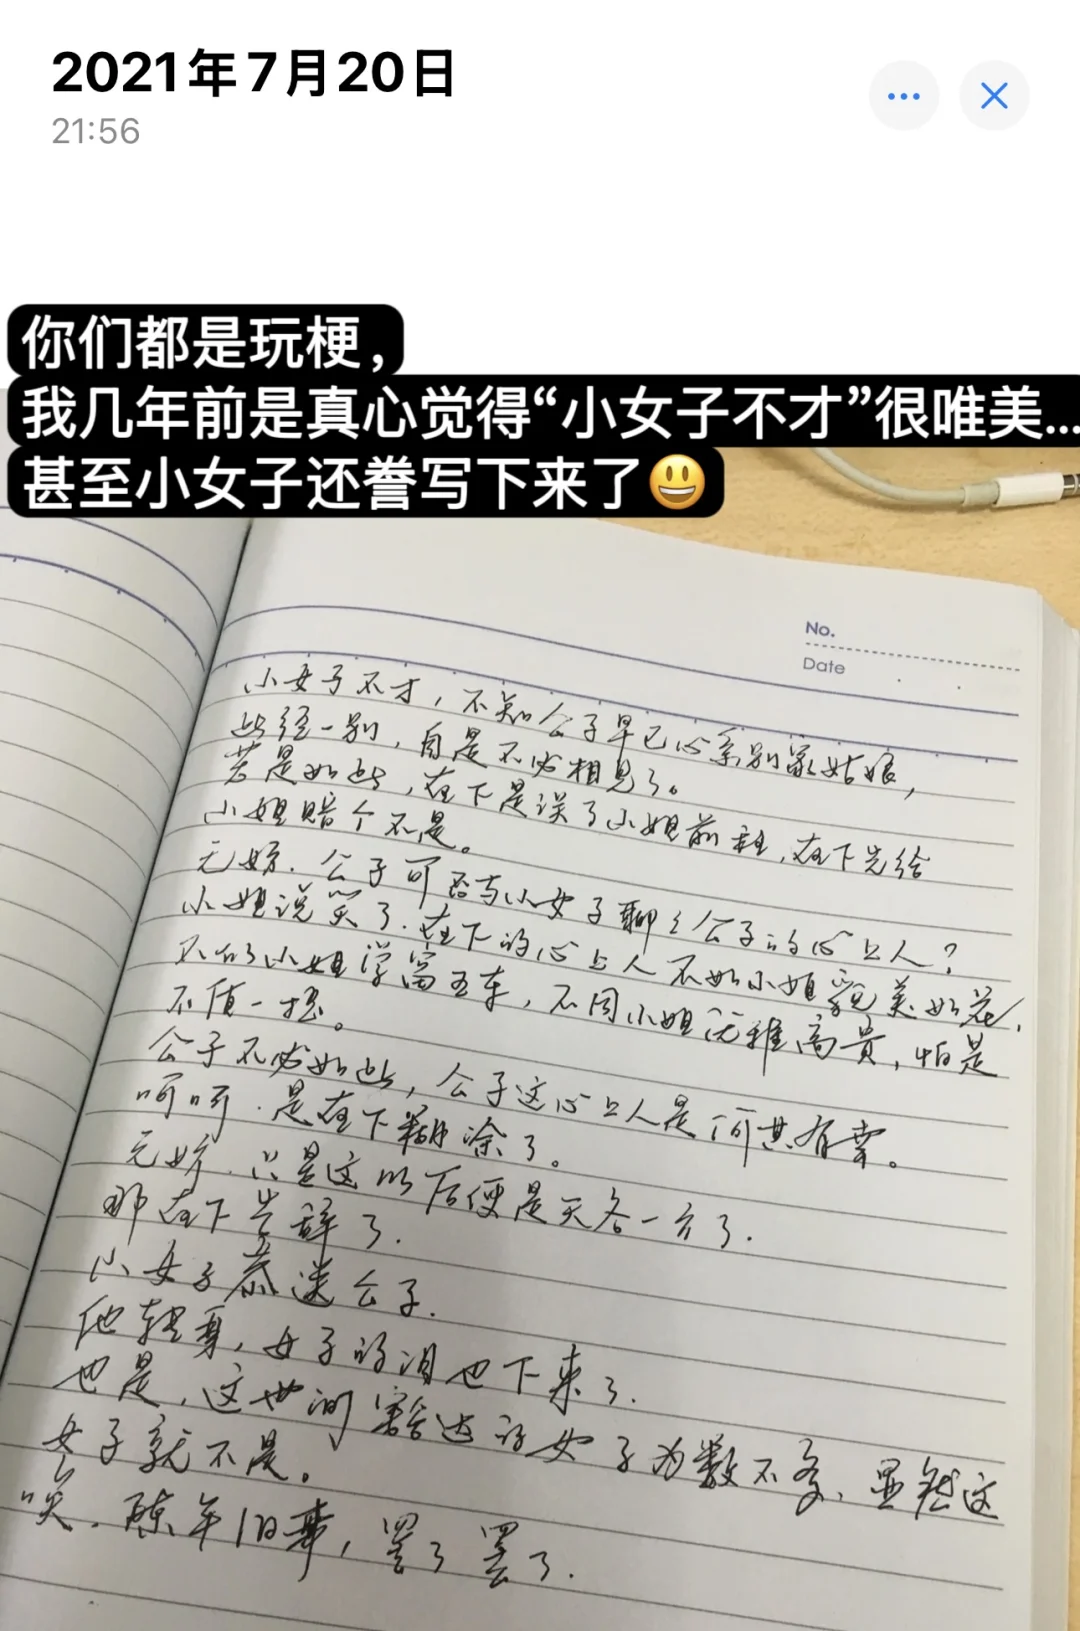 2021年7月20日
21:56
你们都是玩梗，
我几年前是真心觉得“小女子不才”很唯美...
甚至小女子还誊写下来了😃
No.
Date
小女子不才，不知公子早已心系别家姑娘，
此经一别，自是不必相见了。
若是如此，在下是误了小姐前程，在下先给
小姐赔个不是。
无妨．公子可否与小女子聊之公子的心上人？
小姐说笑了．在下的心上人不如小姐貌美如花，
不似小姐学富五车，不同小姐优雅高贵，怕是
不值一提。
公子不必如此，公子这心上人是何其有幸。
呵呵．是在下糊涂了。
无妨．只是这以后便是天各一方了．
那在下告辞了．
小女子恭送公子．
他转身，女子的泪也下来了．
也是，这世间豁达的女子为数不多，显然这
女子就不是。
唉．陈年旧事，罢了罢了．